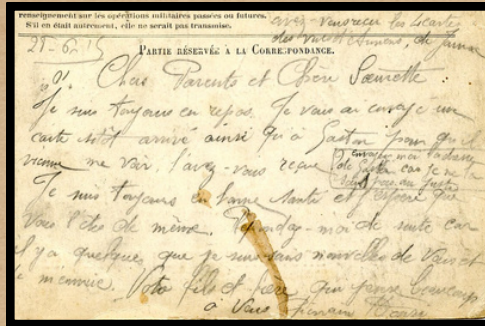 renseignement sur les opérations militaires passées ou futures.
S'il en était autrement, elle ne serait pas transmise.
avez-vous reçu les 4 cartes
des vues d'Amiens, de
28-6-15
PARTIE RÉSERVÉE A LA CORRESPONDANCE.
Chers Parents et Chère Sœurette
Je suis toujours en repos. Je vous ai envoyé une
carte sitôt arrivé ainsi qu'à Gaston pour qu'il
vienne me voir l'avez-vous reçue
envoyez-moi l'adresse
de Gaston car je ne la
au juste
Je suis toujours en bonne santé et j'espère que
vous l'êtes de même. Répondez-moi de suite car
il y a quelques que je suis sans nouvelles de vous et
je m'ennuie. Votre fils et frère qui pense beaucoup
à vous